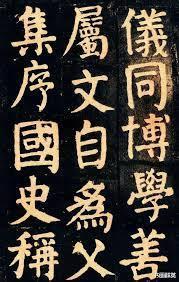 儀同博學善
屬文自爲父
集序國史稱